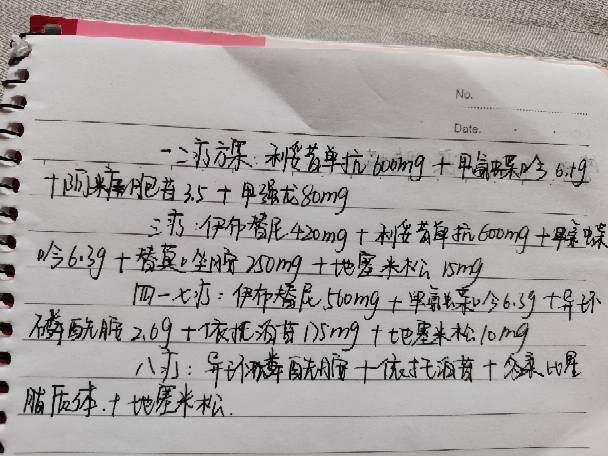 No.
Date.
一二疗方案:利妥昔单抗600mg + 甲氨蝶呤6.4g
+阿米胞苷3.5 + 甲强龙80mg
三疗:伊布替尼420mg + 利妥昔单抗600mg + 甲氨蝶
呤6.3g + 替莫唑胺250mg + 地塞米松15mg
四一七疗:伊布替尼560mg + 甲氨蝶呤6.3g + 异环
磷酰胺2.6g + 依托泊苷175mg + 地塞米松10mg
八疗:异环磷酰胺 + 依托泊苷 + 多柔比星
脂质体 + 地塞米松.